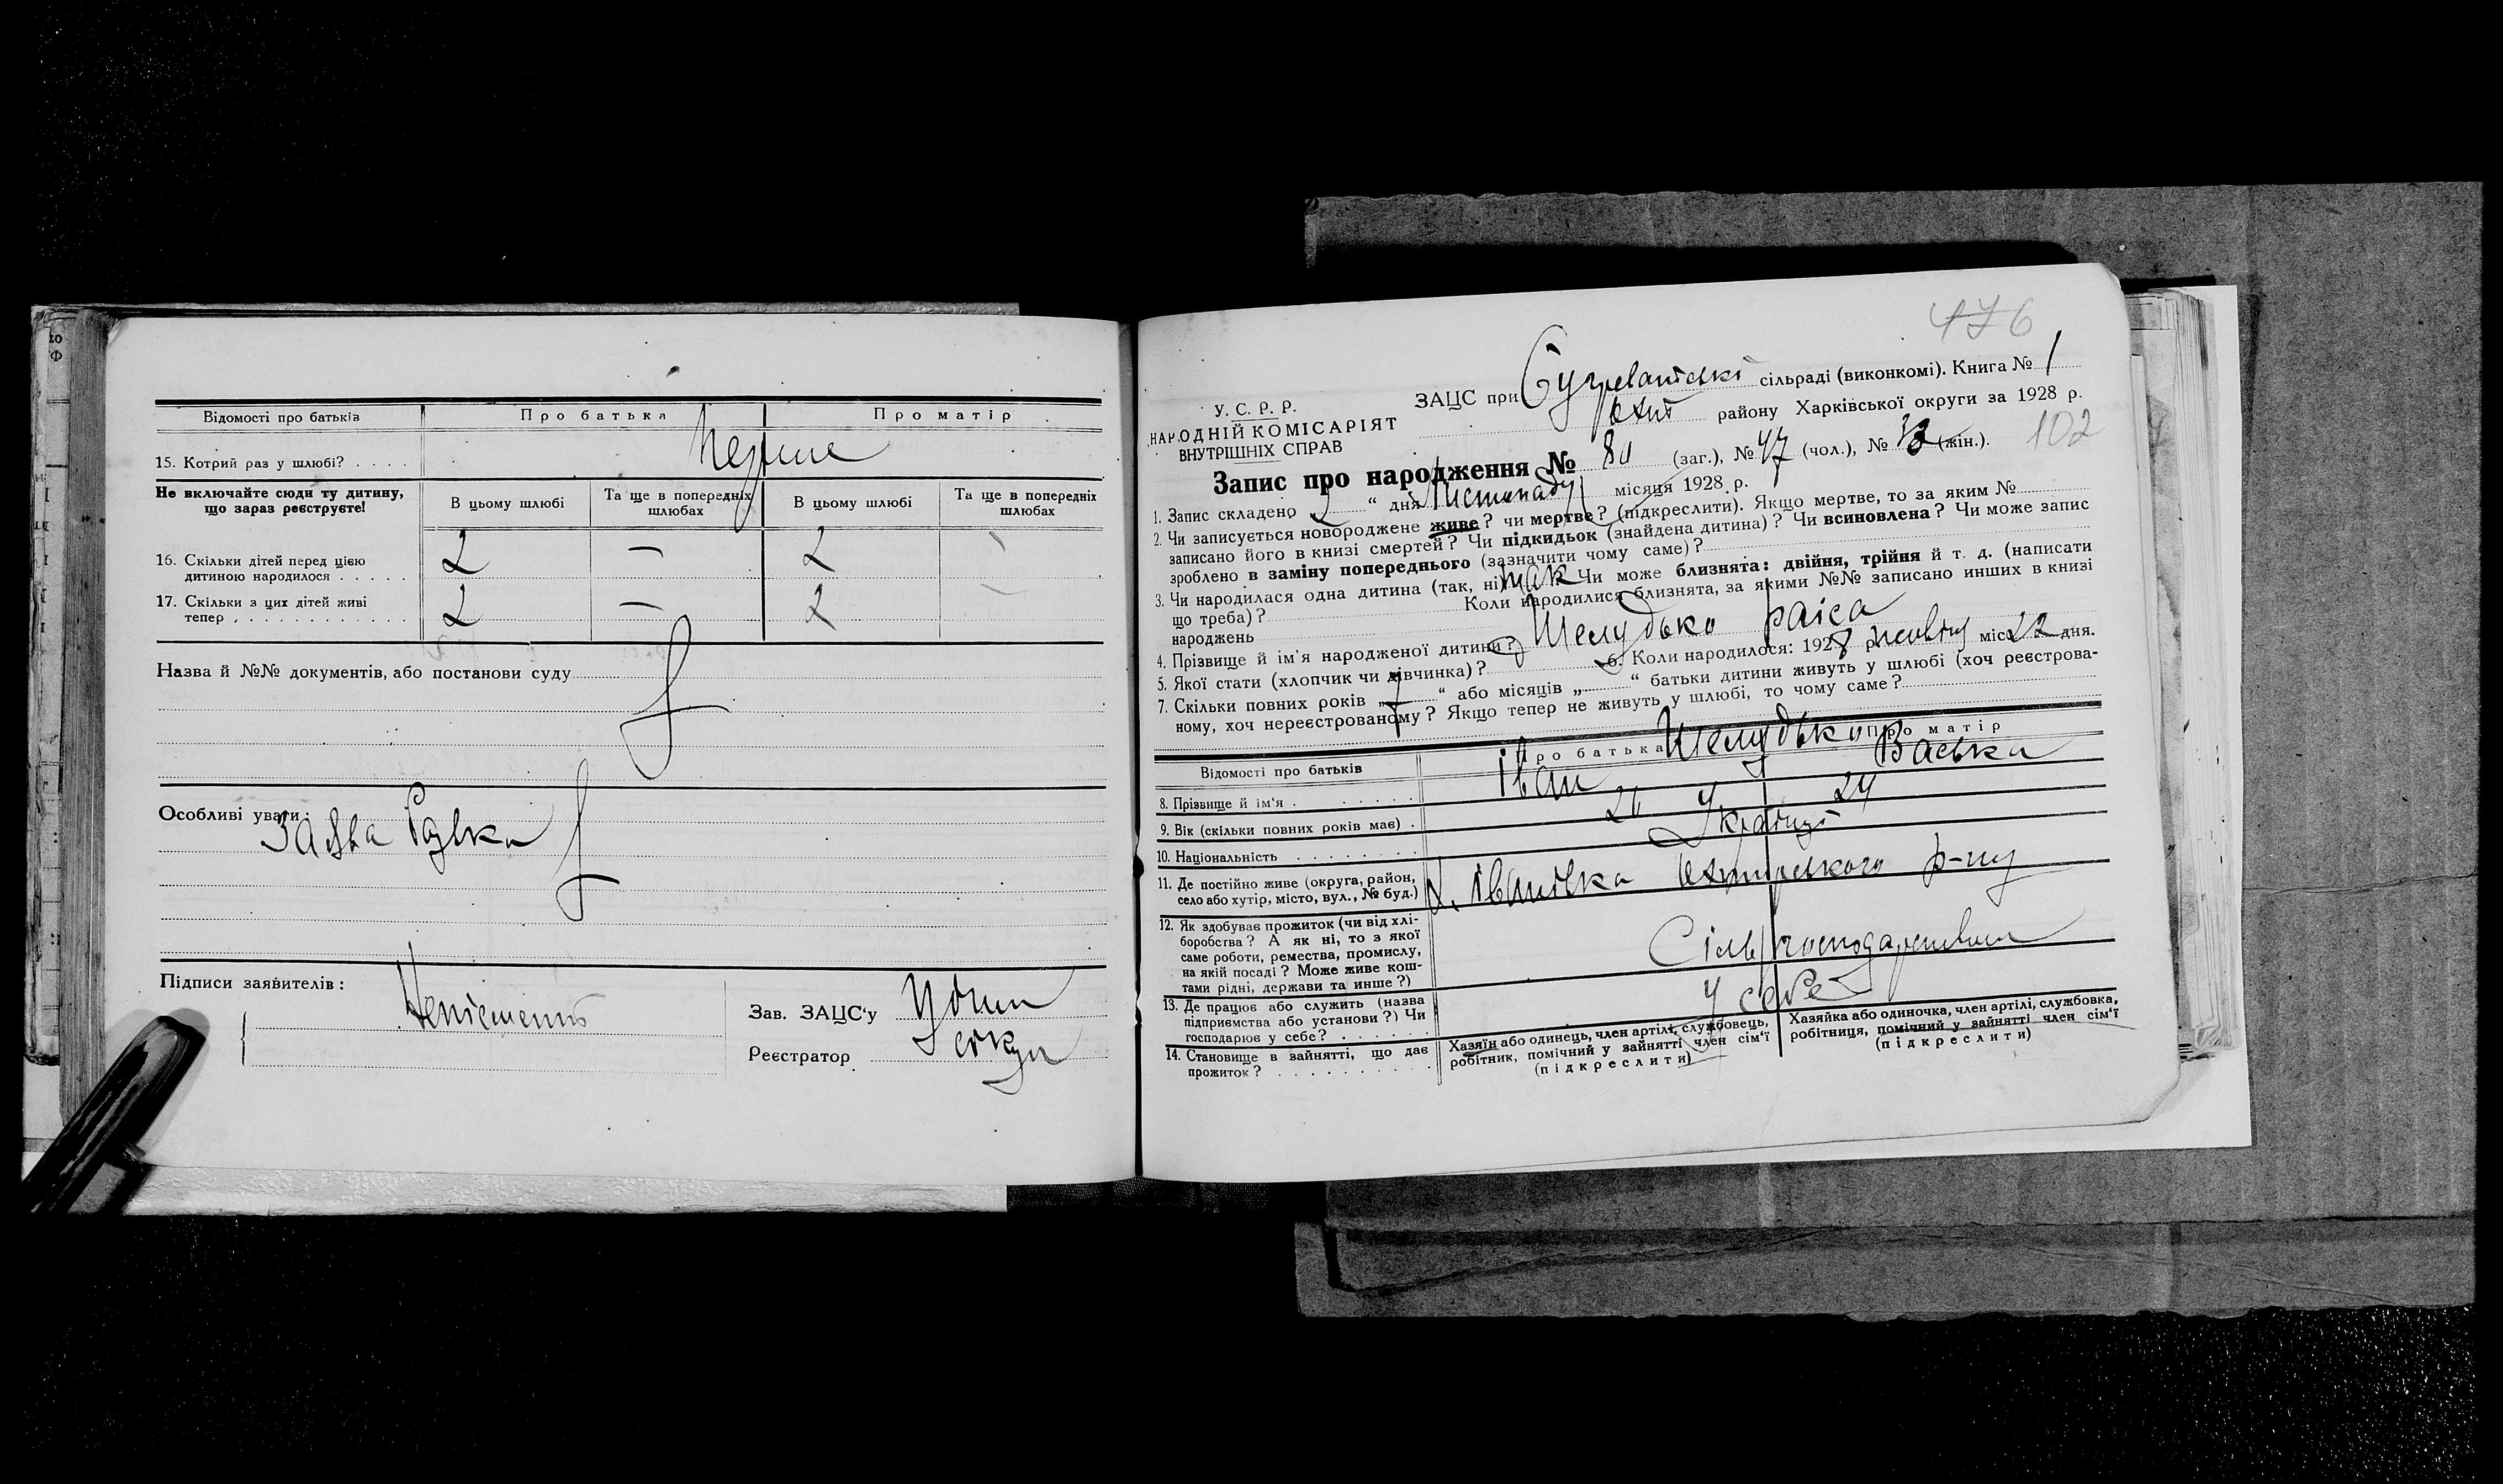 Відомості про батьків Про батька Про матір
15. Котрий раз у шлюбі? . . . . Перше
Не включайте сюди ту дитину, що зараз реєструєте!
В цьому шлюбі
Та ще в попередніх шлюбах
В цьому шлюбі
Та ще в попередніх шлюбах
16. Скільки дітей перед цією
дитиною народилося . . . . . 2 — 2 —
17. Скільки з цих дітей живі
тепер . . . . . . . . . . . . 2 — 2 —
Назва й №№ документів, або постанови суду
Особливі уваги:
Заява
Підписи заявителів:
Зав. ЗАЦС'у
Реєстратор
476
У. С. Р. Р.
НАРОДНІЙ КОМІСАРІЯТ
ВНУТРІШНІХ СПРАВ
ЗАЦС при сільраді (виконкомі). Книга № 1
Охт району Харківської округи за 1928 р.
102
Запис про народження № (заг.), № 47 (чол.), № (жін.).
1. Запис складено 2 “ дня Листопаду місяця 1928 р.
2. Чи записується новороджене живе? чи мертве? (підкреслити). Якщо мертве, то за яким №
записано його в книзі смертей? Чи підкидьок (знайдена дитина)? Чи всиновлена? Чи може запис
зроблено в заміну попереднього (зазначити чому саме)?
3. Чи народилася одна дитина (так, ні) так Чи може близнята: двійня, трійня й т. д. (написати
що треба)? Коли народилися близнята, за якими №№ записано инших в книзі
народжень
4. Прізвище й ім'я народженої дитини? Шелудько раіса
5. Якої стати (хлопчик чи дівчинка)? 6. Коли народилося: 1928 р. жовтня міс. 22 дня.
7. Скільки повних років „ “ або місяців „ “ батьки дитини живуть у шлюбі (хоч реєстрова-
ному, хоч нереєстрованому? Якщо тепер не живуть у шлюбі, то чому саме?
Відомості про батьків Про батька Про матір
Шелудько
8. Прізвище й ім'я . . . . . . . Іван Васька
9. Вік (скільки повних років має) . 26 24
10. Національність . . . . . . . . Українці
11. Де постійно живе (округа, район,
село або хутір, місто, вул., № буд.) х. Іванівка Охтирського р-ну
12. Як здобуває прожиток (чи від хлі-
боробства? А як ні, то з якої
саме роботи, ремества, промислу,
на якій посаді? Може живе кош-
тами рідні, держави та инше?)
13. Де працює або служить (назва
підприємства або установи?) Чи
господарює у себе? . . . . . . У себе
14. Становище в зайнятті, що дає
прожиток? . . . . . . . . . .
Хазяїн або одинець, член артілі, службовець,
робітник, помічний у зайнятті член сім'ї
(підкреслити)
Хазяйка або одиночка, член артілі, службовка,
робітниця, помічний у зайнятті член сім'ї
(підкреслити)